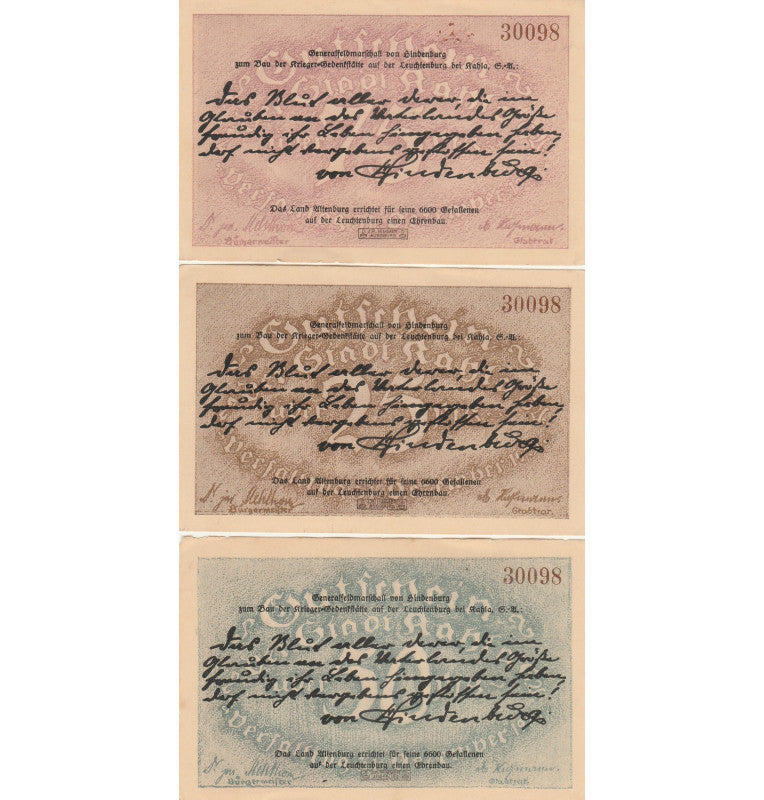 30098
Generalfeldmarschall von Hindenburg
zum Bau der Krieger-Gedenkstätte auf der Leuchtenburg bei Kahla, S.-A.:
Das Blut aller derer, die im
Glauben an des Vaterlandes Größe
freudig ihr Leben hingegeben haben,
darf nicht vergebens geflossen sein!
von Hindenburg
Das Land Altenburg errichtet für seine 6600 Gefallenen
auf der Leuchtenburg einen Ehrenbau.
Bürgermeister
Stadtrat.
30098
Gutschein
Stadt
25
Generalfeldmarschall von Hindenburg
zum Bau der Krieger-Gedenkstätte auf der Leuchtenburg bei Kahla, S.-A.:
Das Blut aller derer, die im
Glauben an des Vaterlandes Größe
freudig ihr Leben hingegeben haben,
darf nicht vergebens geflossen sein!
von Hindenburg
Das Land Altenburg errichtet für seine 6600 Gefallenen
auf der Leuchtenburg einen Ehrenbau.
Bürgermeister
Stadtrat.
30098
Gutschein
Stadt
50
Generalfeldmarschall von Hindenburg
zum Bau der Krieger-Gedenkstätte auf der Leuchtenburg bei Kahla, S.-A.:
Das Blut aller derer, die im
Glauben an des Vaterlandes Größe
freudig ihr Leben hingegeben haben,
darf nicht vergebens geflossen sein!
von Hindenburg
Das Land Altenburg errichtet für seine 6600 Gefallenen
auf der Leuchtenburg einen Ehrenbau.
Bürgermeister
Stadtrat.